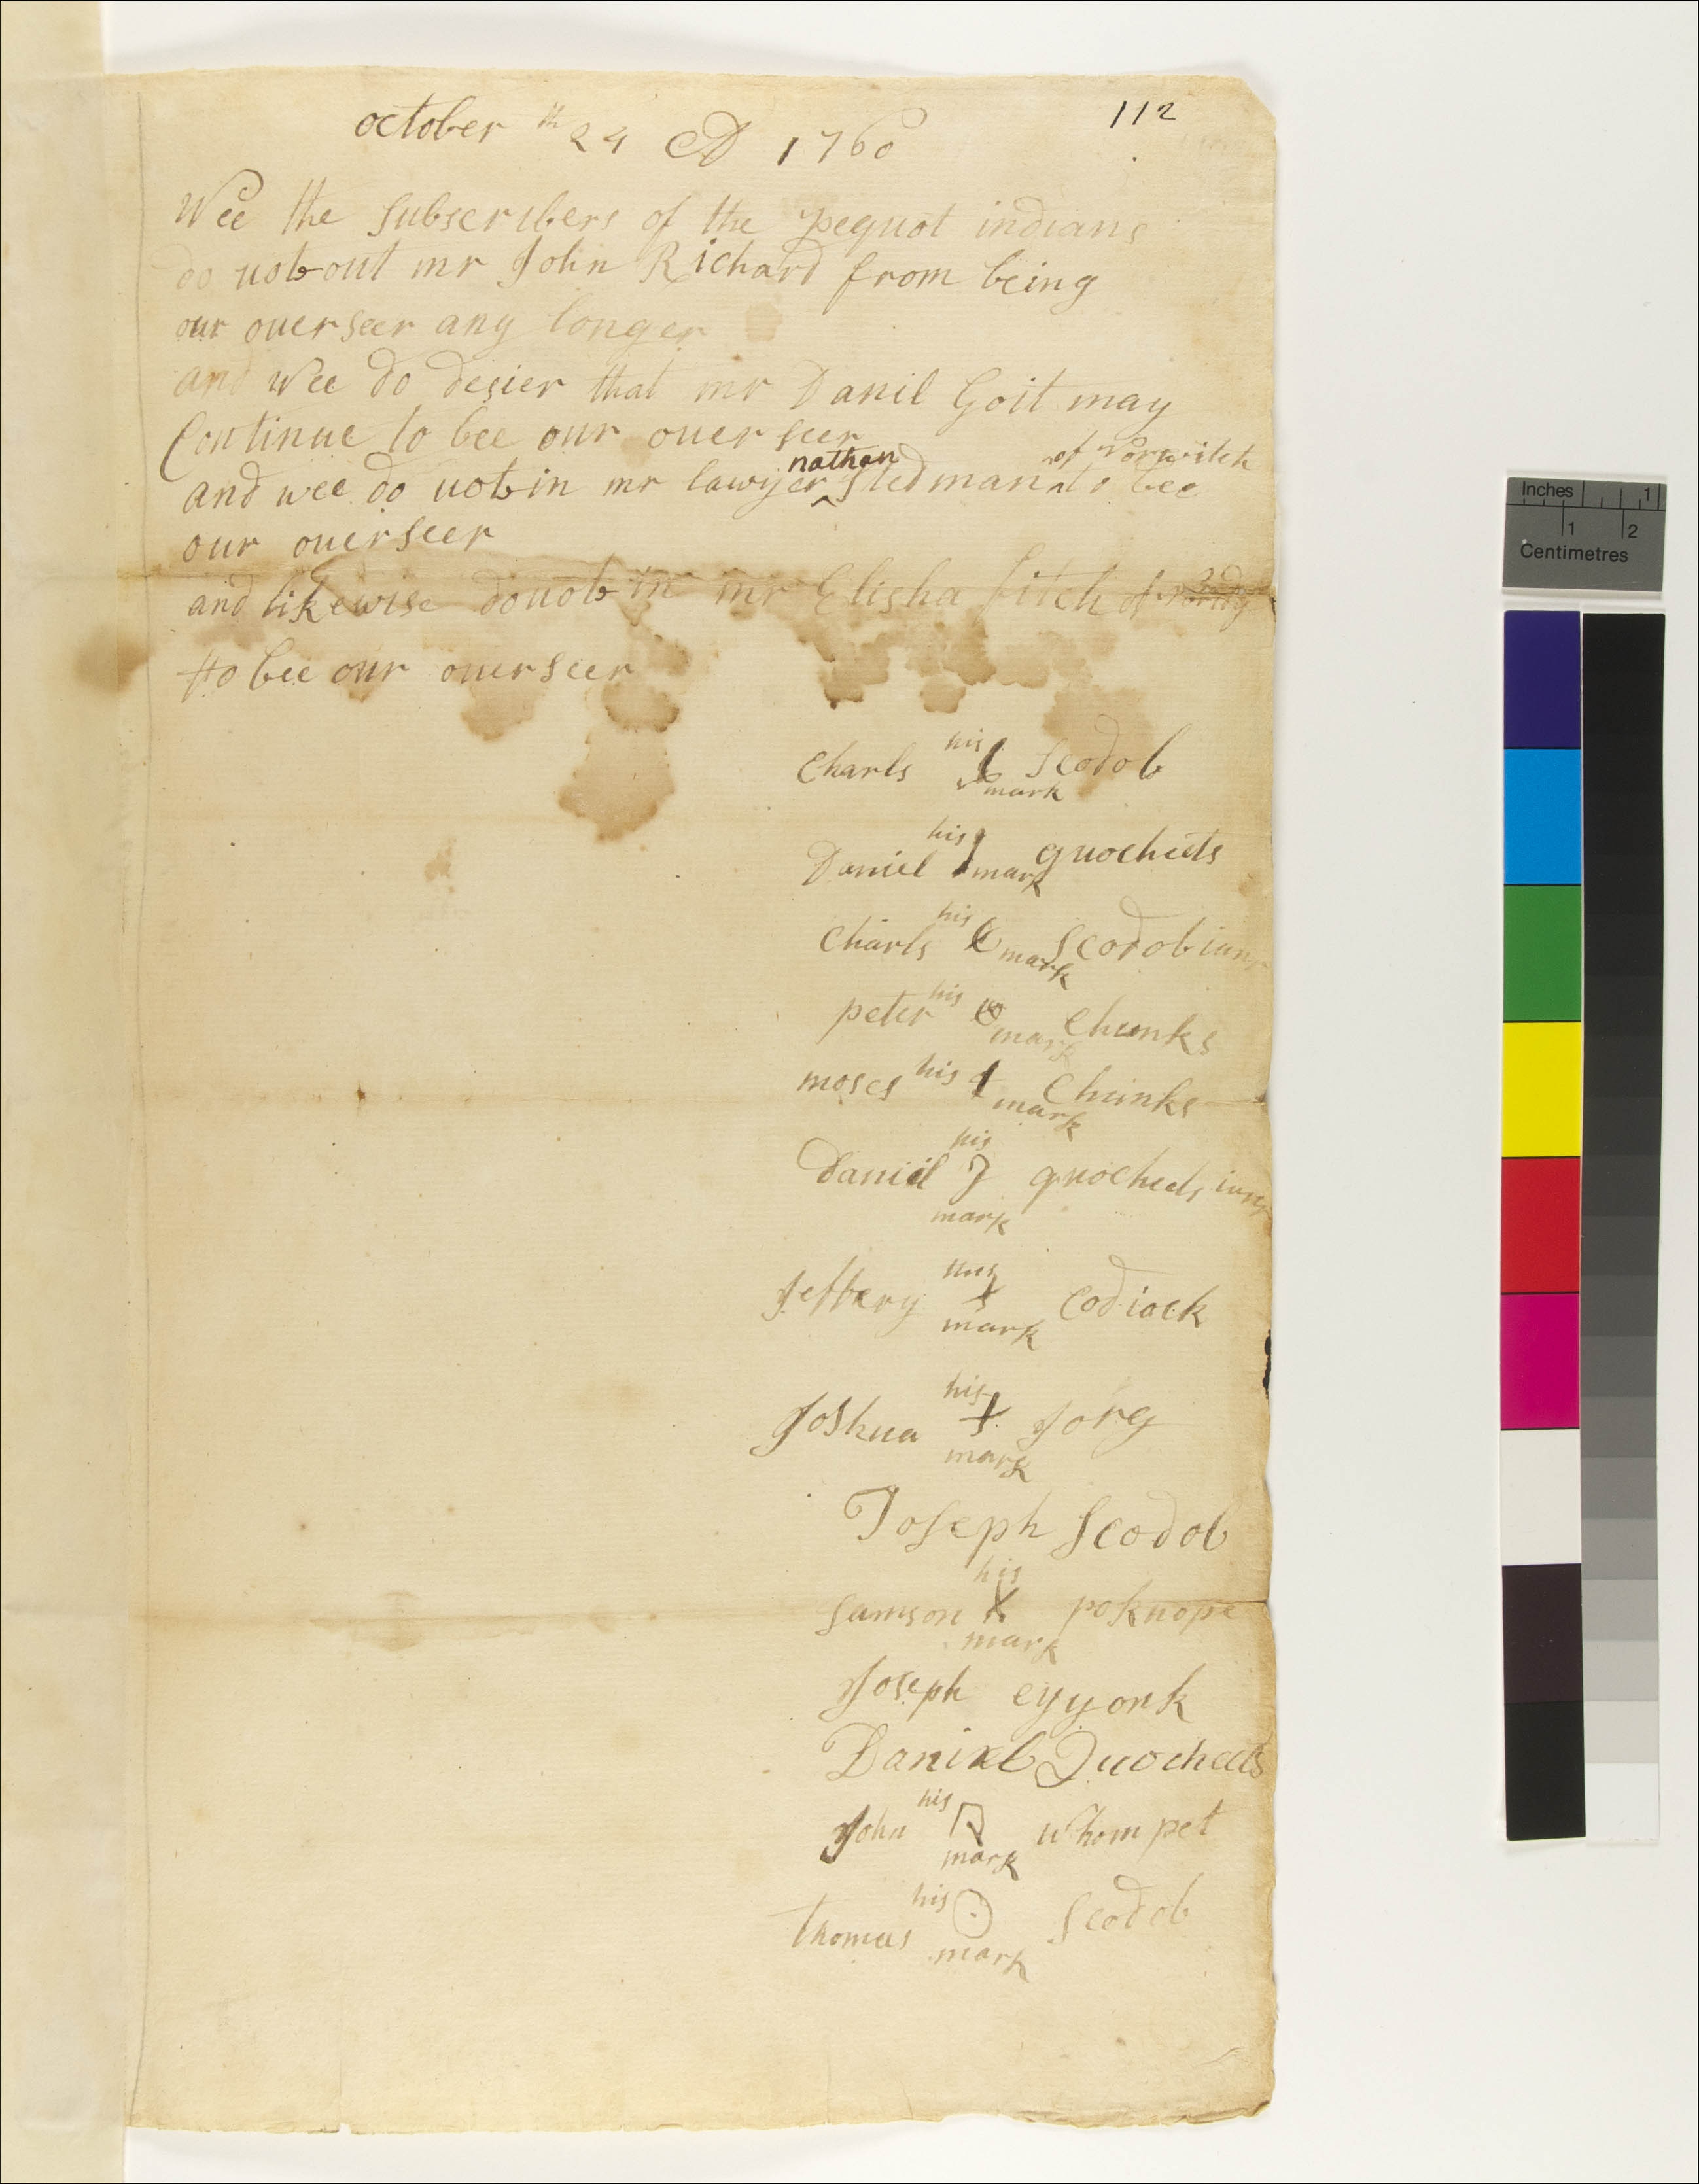 112
october th 24 AD 1760
Wee the Subscribers of the pequot indians
do uot out mr John Richard from being
our ouerseer any longer
and Wee do desier that mr Danil Goit may
Continue to bee our ouer seer
nathan of Norwitch
and wee do uot in mr lawyer ‸ Stedman ‸ to bee
our ouerseer
and likewise do uot in mr Elisha fitch of
to bee our ouerseer
Charls his mark Scodob
Daniel his mark quocheets
Charls his mark Scodob iunr
peter his mark Chunks
moses his mark Chunks
Daniel his mark quocheets iunr
Jeffery his mark Codiock
Joshua his mark Jorg
Joseph Scodob
Samson his X mark poknope
Joseph eyyonk
Daniel Quocheets
John his mark whompet
thomas his mark Scodob
Inches 1
1 2
Centimetres